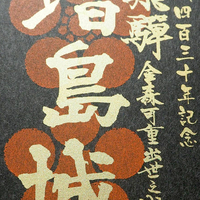 四百三十年記念
飛驒
金森可重出世之
増島城